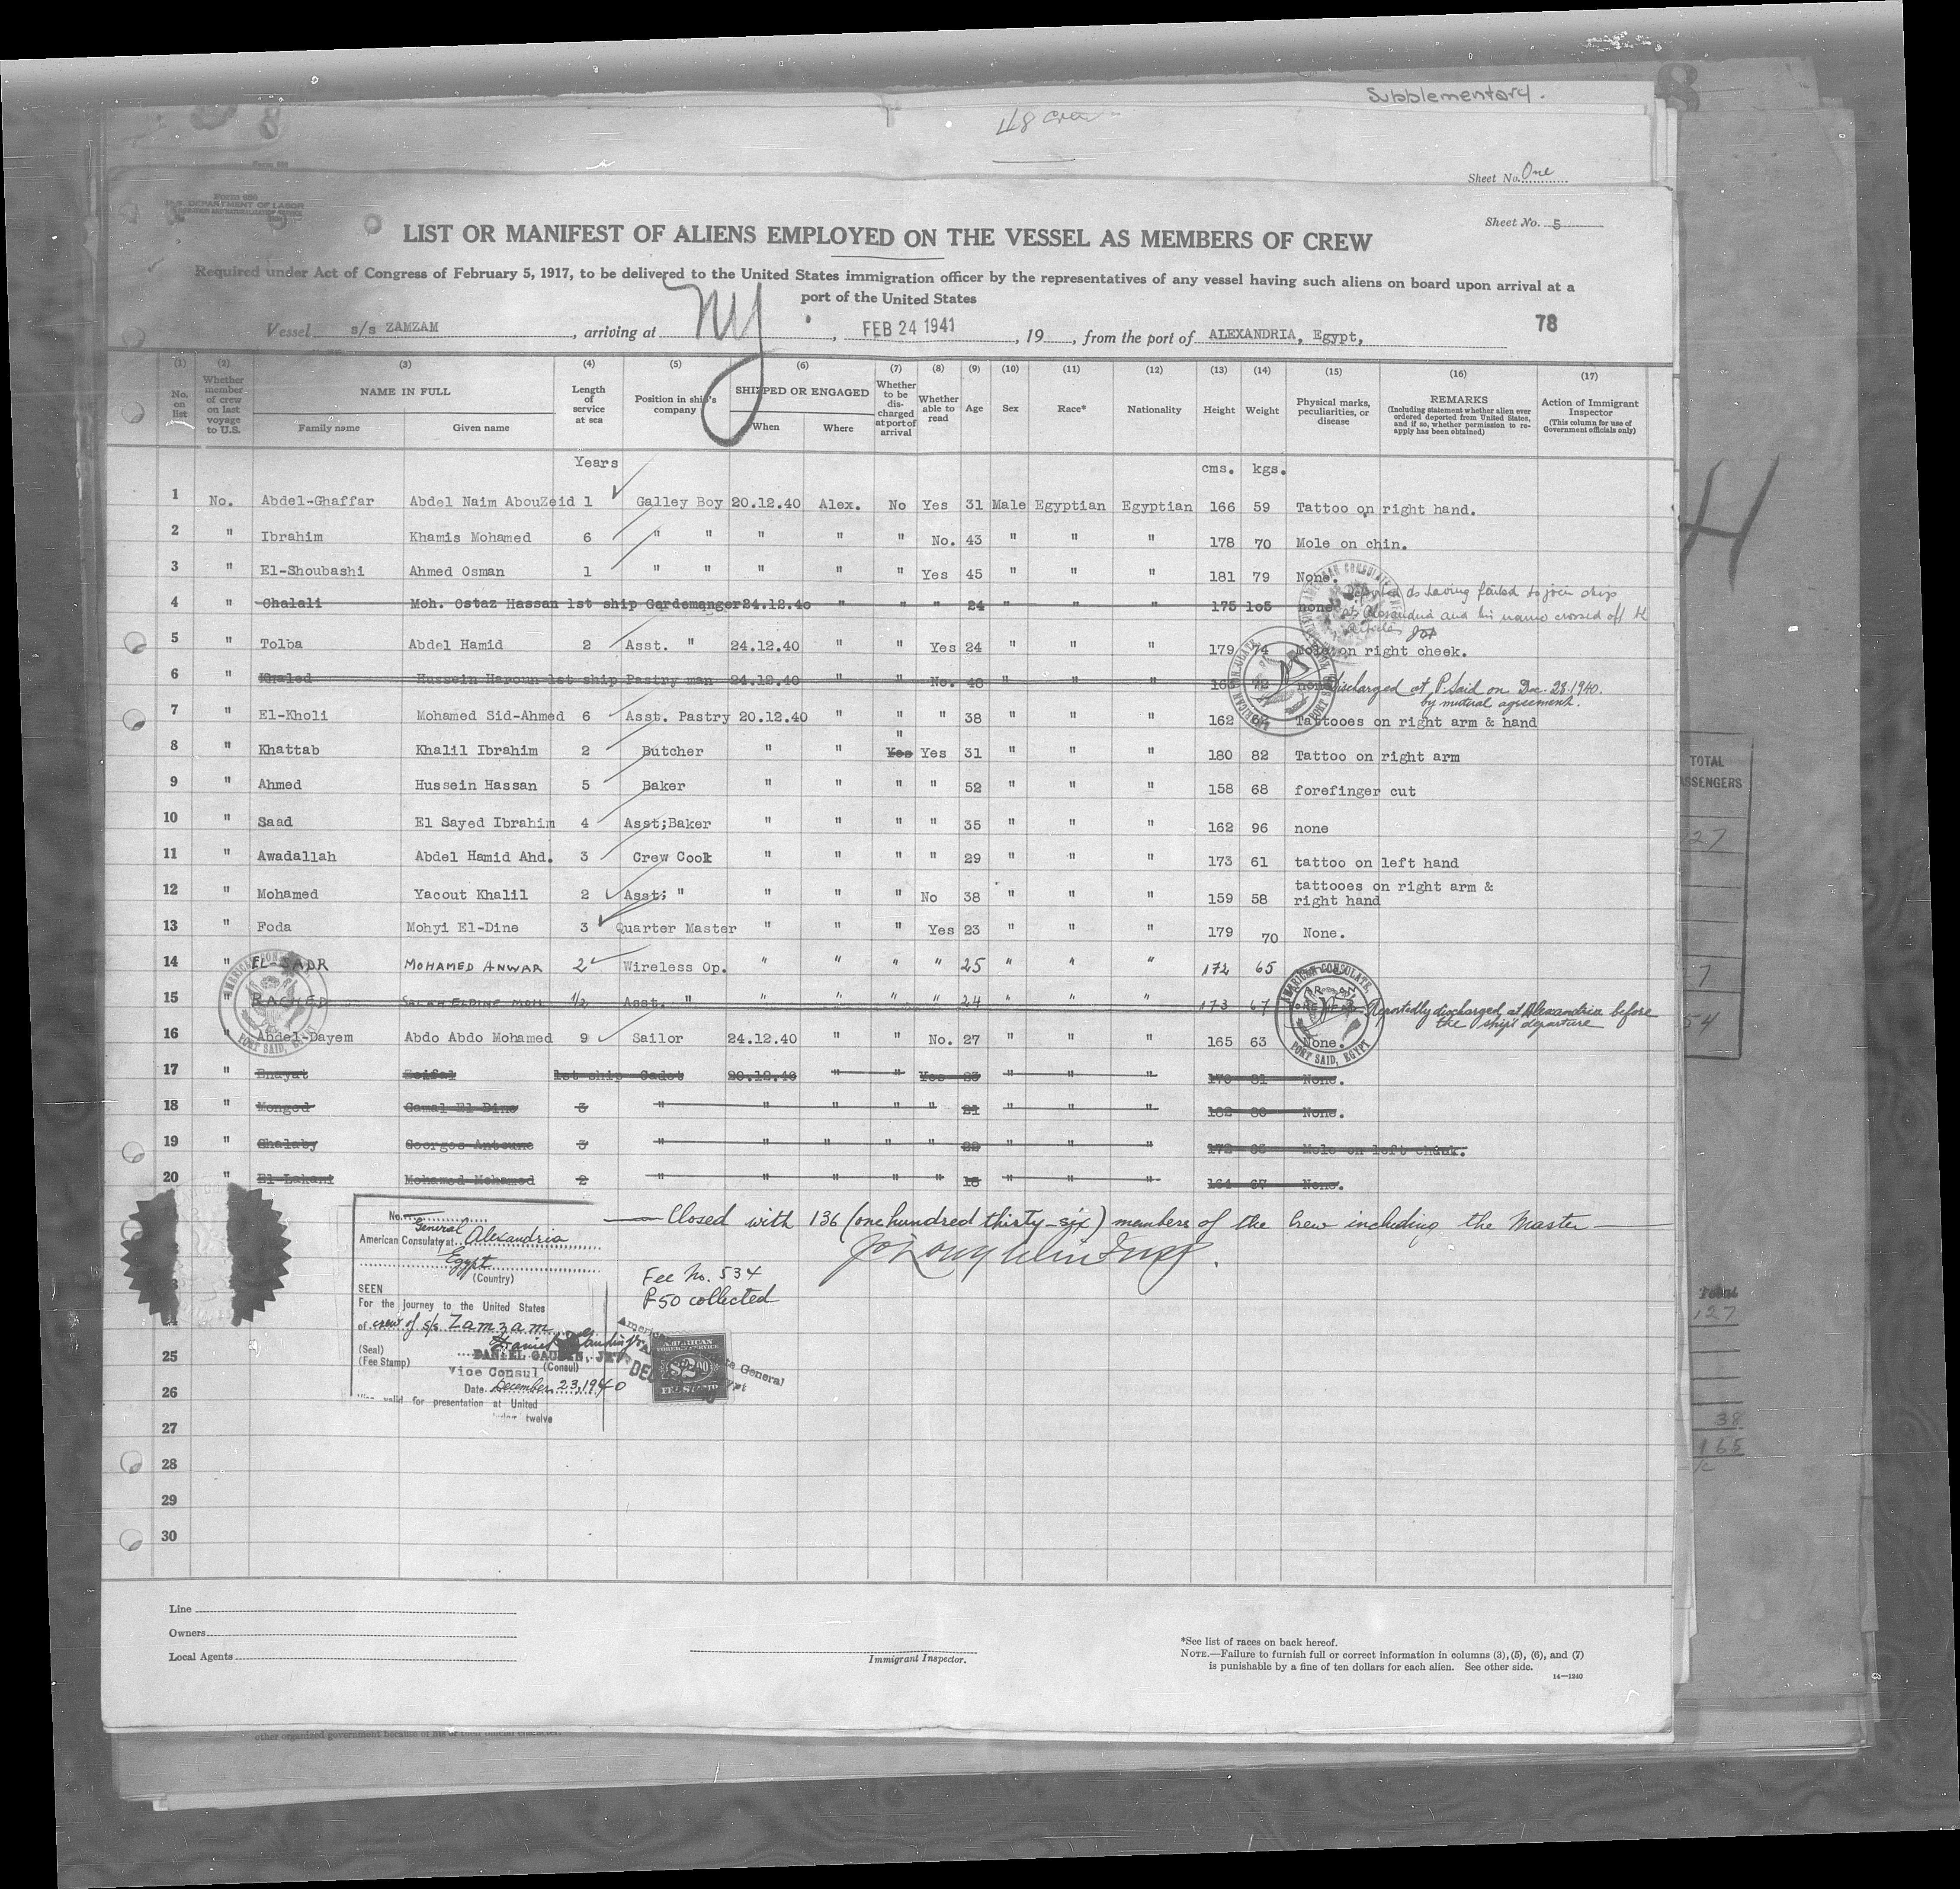 Supplementary.
48 crew
Sheet No. One
Form 680
U.S. DEPARTMENT OF LABOR
Sheet No. 5
LIST OR MANIFEST OF ALIENS EMPLOYED ON THE VESSEL AS MEMBERS OF CREW
Required under Act of Congress of February 5, 1917, to be delivered to the United States immigration officer by the representatives of any vessel having such aliens on board upon arrival at a
port of the United States
Vessel s/s ZAMZAM, arriving at NY, FEB 24 1941, 19, from the port of ALEXANDRIA, Egypt,
78
(1) No. on list
(2) Whether member of crew on last voyage to U.S.
(3) NAME IN FULL Family name Given name
(4) Length of service at sea
(5) Position in ship's company
(6) SHIPPED OR ENGAGED When Where
(7) Whether to be discharged at port of arrival
(8) Whether able to read
(9) Age
(10) Sex
(11) Race*
(12) Nationality
(13) Height
(14) Weight
(15) Physical marks, peculiarities, or disease
(16) REMARKS (Including statement whether alien ever ordered deported from United States, and if so, whether permission to re-apply has been obtained)
(17) Action of Immigrant Inspector (This column for use of Government officials only)
Years cms. kgs.
1 No. Abdel-Ghaffar Abdel Naim AbouZeid 1 Galley Boy 20.12.40 Alex. No Yes 31 Male Egyptian Egyptian 166 59 Tattoo on right hand.
2 " Ibrahim Khamis Mohamed 6 " " " " " No. 43 " " " 178 70 Mole on chin.
3 " El-Shoubashi Ahmed Osman 1 " " " " " Yes 45 " " " 181 79 None.
4 " Ghalali Moh. Ostaz Hassan 1st ship Gardemanger 24.12.40 " " " 24 " " " 175 105 none Reported as having failed to join ship
at Alexandria and his name crossed off
5 " Tolba Abdel Hamid 2 Asst. " 24.12.40 " " Yes 24 " " " 179 74 Mole on right cheek.
6 " Khaled Hussein Haroun 1st ship Pastry man 24.12.40 " " No. 40 " " " 72 none Discharged at P. Said on Dec. 28. 1940.
by mutual agreement.
7 " El-Kholi Mohamed Sid-Ahmed 6 Asst. Pastry 20.12.40 " " " 38 " " " 162 62 Tattooes on right arm & hand
8 " Khattab Khalil Ibrahim 2 Butcher " " " Yes Yes 31 " " " 180 82 Tattoo on right arm
9 " Ahmed Hussein Hassan 5 Baker " " " " 52 " " " 158 68 forefinger cut
10 " Saad El Sayed Ibrahim 4 Asst;Baker " " " " 35 " " " 162 96 none
11 " Awadallah Abdel Hamid Ahd. 3 Crew Cook " " " " 29 " " " 173 61 tattoo on left hand
12 " Mohamed Yacout Khalil 2 Asst; " " " " No 38 " " " 159 58 tattooes on right arm &
right hand
13 " Foda Mohyi El-Dine 3 Quarter Master " " " Yes 23 " " " 179 70 None.
14 " EL-SADR MOHAMED ANWAR 2 Wireless Op. " " " " 25 " " " 172 65
15 " RACHED SALAH ELDINE MOH 1/2 Asst. " " " " " 24 " " " 173 67 Reportedly discharged at Alexandria before
the ship's departure
16 " Abdel-Dayem Abdo Abdo Mohamed 9 Sailor 24.12.40 " " No. 27 " " " 165 63 None.
17 " Enayat Seifal 1st ship Cadet 20.12.40 " " Yes 23 " " " 170 81 None.
18 " Monged Gamal El Dine 3 " " " " " 21 " " " 182 80 None.
19 " Chalaby Georges Antoune 3 " " " " " 22 " " " 172 63 Mole on left cheek.
20 " El-Lakani Mohamed Mohamed 2 " " " " " 18 " " " 164 67 None.
Closed with 136 (one hundred thirty-six) members of the crew including the Master
No.
American Consulate General at Alexandria
Egypt
(Country)
SEEN
For the journey to the United States
of crew of s/s Zamzam
(Seal)
(Fee Stamp)
DANIEL GAUDIN, JR.
Vice Consul (Consul)
Date December 23, 1940
valid for presentation at United
twelve
Fee No. 534
P50 collected
AMERICAN
FOREIGN SERVICE
FEE STAMP
DEC
AMERICAN CONSULATE,
PORT SAID, EGYPT
25
26
27
28
29
30
Line
Owners
Local Agents
Immigrant Inspector.
*See list of races on back hereof.
NOTE.—Failure to furnish full or correct information in columns (3), (5), (6), and (7)
is punishable by a fine of ten dollars for each alien. See other side.
14—1240
TOTAL
PASSENGERS
127
54
Total
127
38
165
other organized government because of his or their official character.